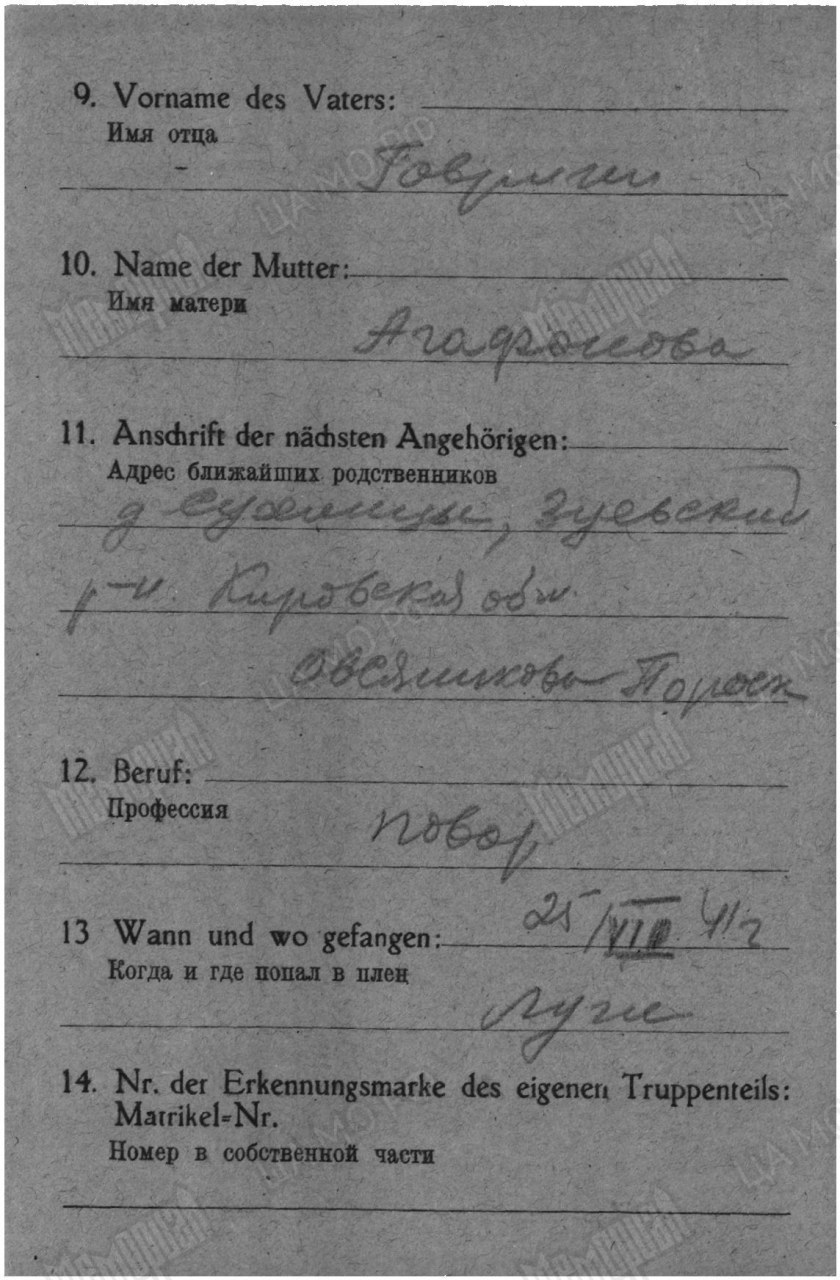 9. Vorname des Vaters:
Имя отца
10. Name der Mutter:
Имя матери
Агафонова
11. Anschrift der nächsten Angehörigen:
Адрес ближайших родственников
д , Зуевский
р-н Кировская обл.
Овсяникова
12. Beruf:
Профессия
повар
25/VIII 41 г
13 Wann und wo gefangen:
Когда и где попал в плен
14. Nr. der Erkennungsmarke des eigenen Truppenteils:
Matrikel=Nr.
Номер в собственной части
ЦАМО РФ
Мемориал